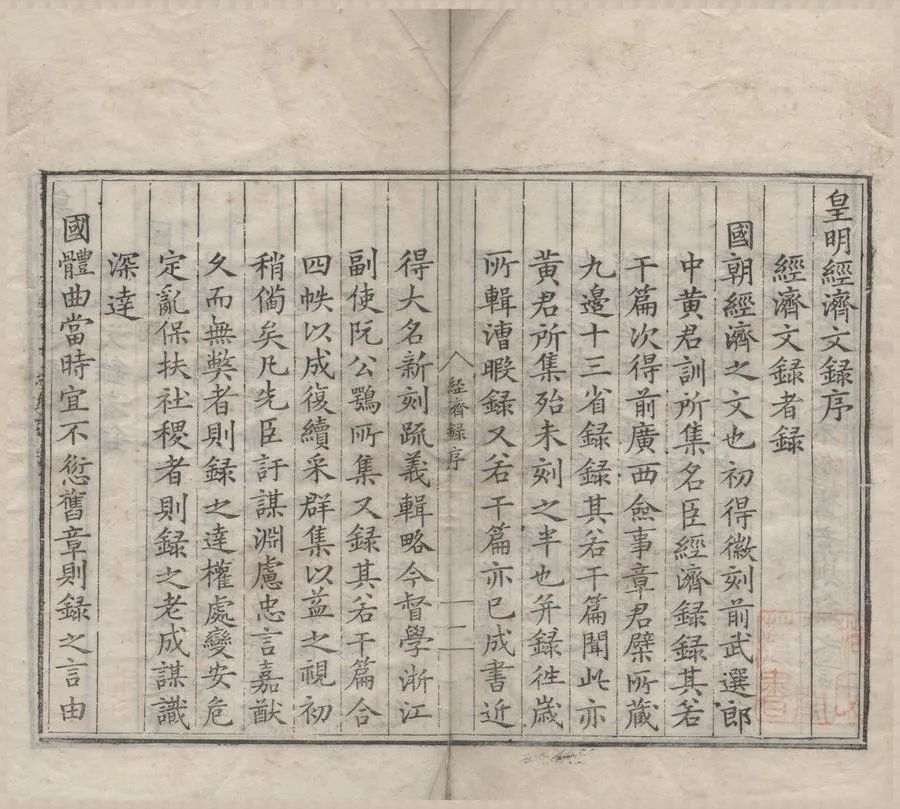 皇明經濟文録序
經濟文録者録
國朝經濟之文也初得徽刻前武選郎
中黄君訓所集名臣經濟録録其若
干篇次得前廣西僉事章君檗所藏
九邊十三省録録其若干篇聞此亦
黄君所集殆未刻之半也并録徃歳
所輯漕暇録又若干篇亦已成書近
經濟録序
一二
得大名新刻疏義輯略今督學浙江
副使阮公鶚所集又録其若干篇合
四帙以成復續采群集以益之視初
稍僃矣凡先臣訏謀淵慮忠言嘉猷
久而無弊者則録之達權處變安危
定亂保扶社稷者則録之老成謀識
深達
國體曲當時宜不愆舊章則録之言由